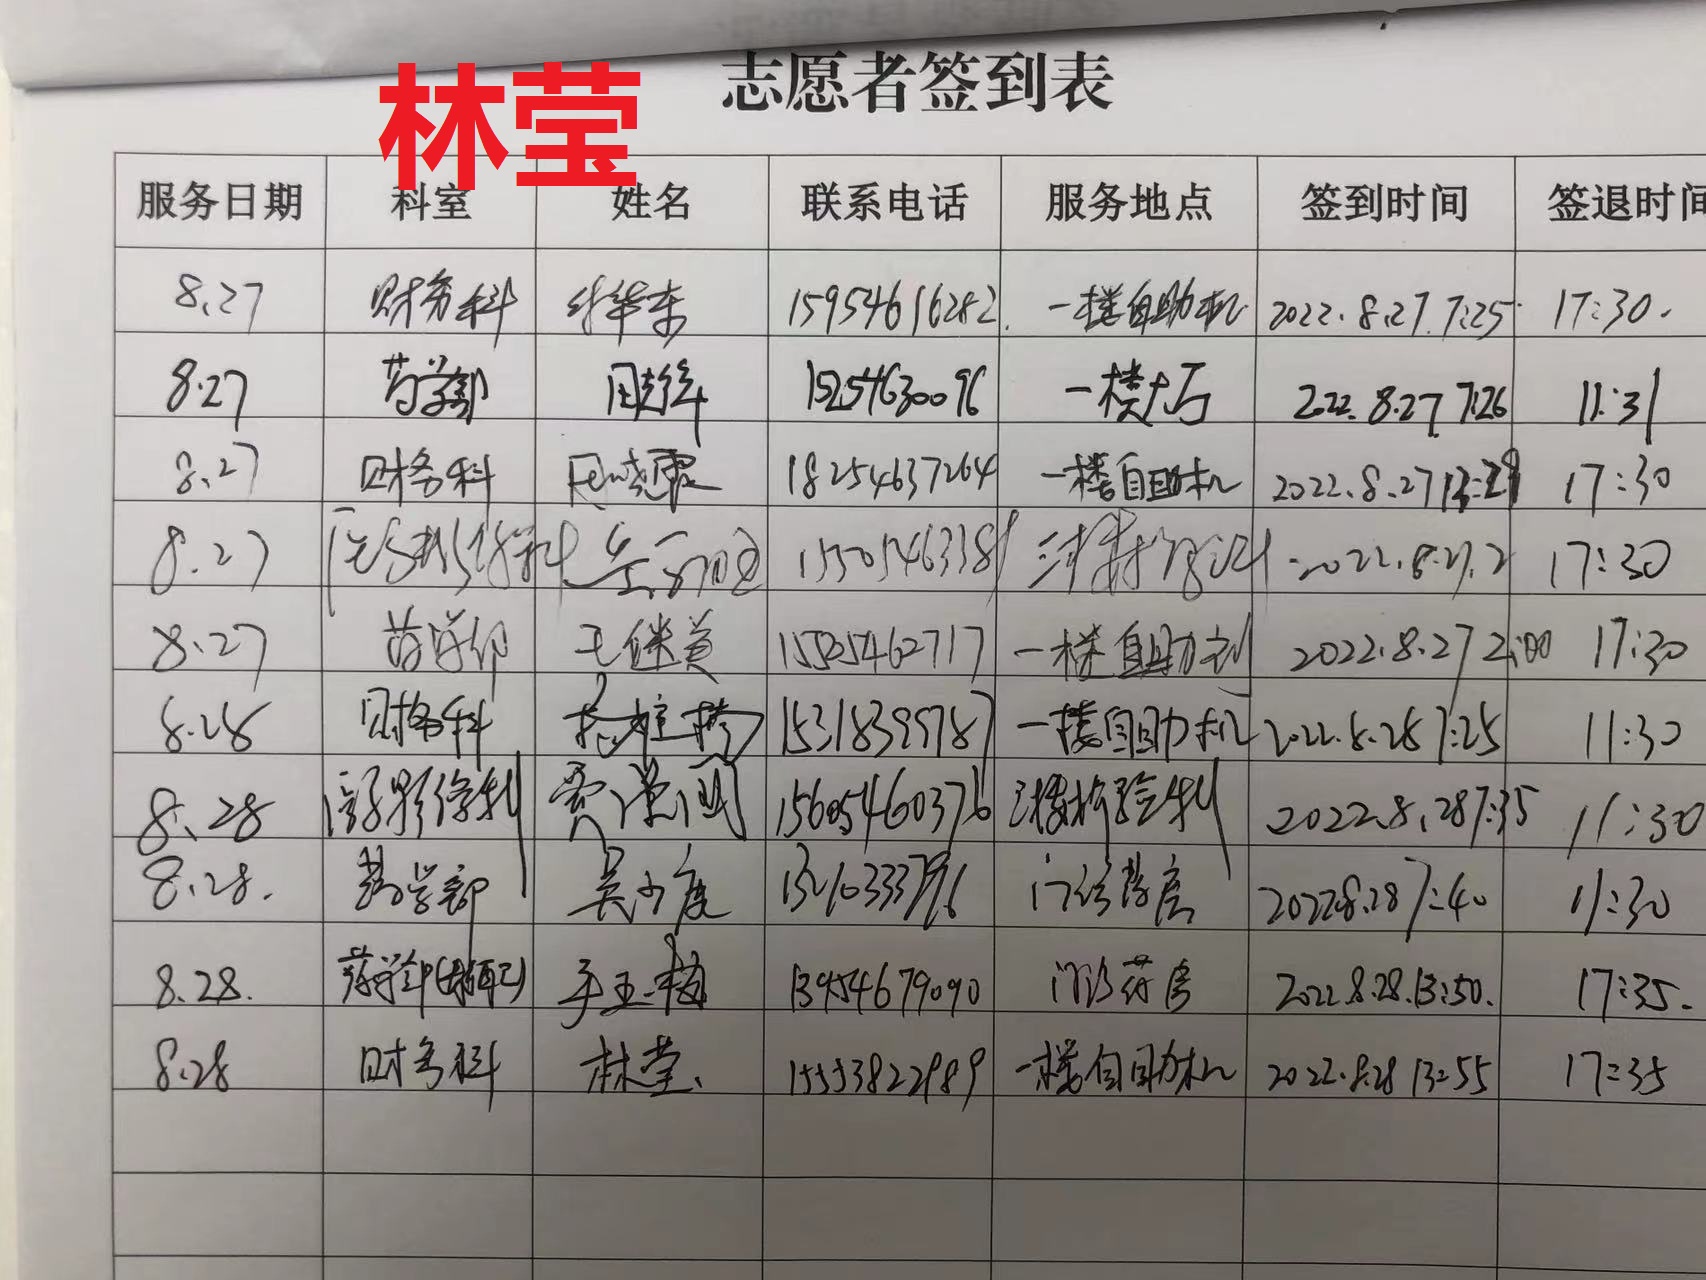 林莹
志愿者签到表
服务日期 科室 姓名 联系电话 服务地点 签到时间 签退时间
8.27 财务科 15954616282 一楼自助机 2022.8.27 7:25 17:30.
8.27 药学部 15254630096 一楼大厅 2022.8.27 7:26 11:31
8.27 财务科 18254637264 一楼自助机 2022.8.27 17:30
8.27 17:30
8.27 药学部 王继美 15525462717 一楼自助机 2022.8.27 2:00 17:30
8.28 财务科 15318399787 一楼自助机 2022.8.28 7:25 11:30
8.28 15605460376 2022.8.28 7:35 11:30
8.28. 药学部 吴少度 门诊药房 2022.8.28 7:40 11:30
8.28. 药学部 13954679090 门诊药房 2022.8.28.13:50. 17:35.
8.28 财务科 林莹 15553822989 一楼自助机 2022.8.28 13:55 17:35